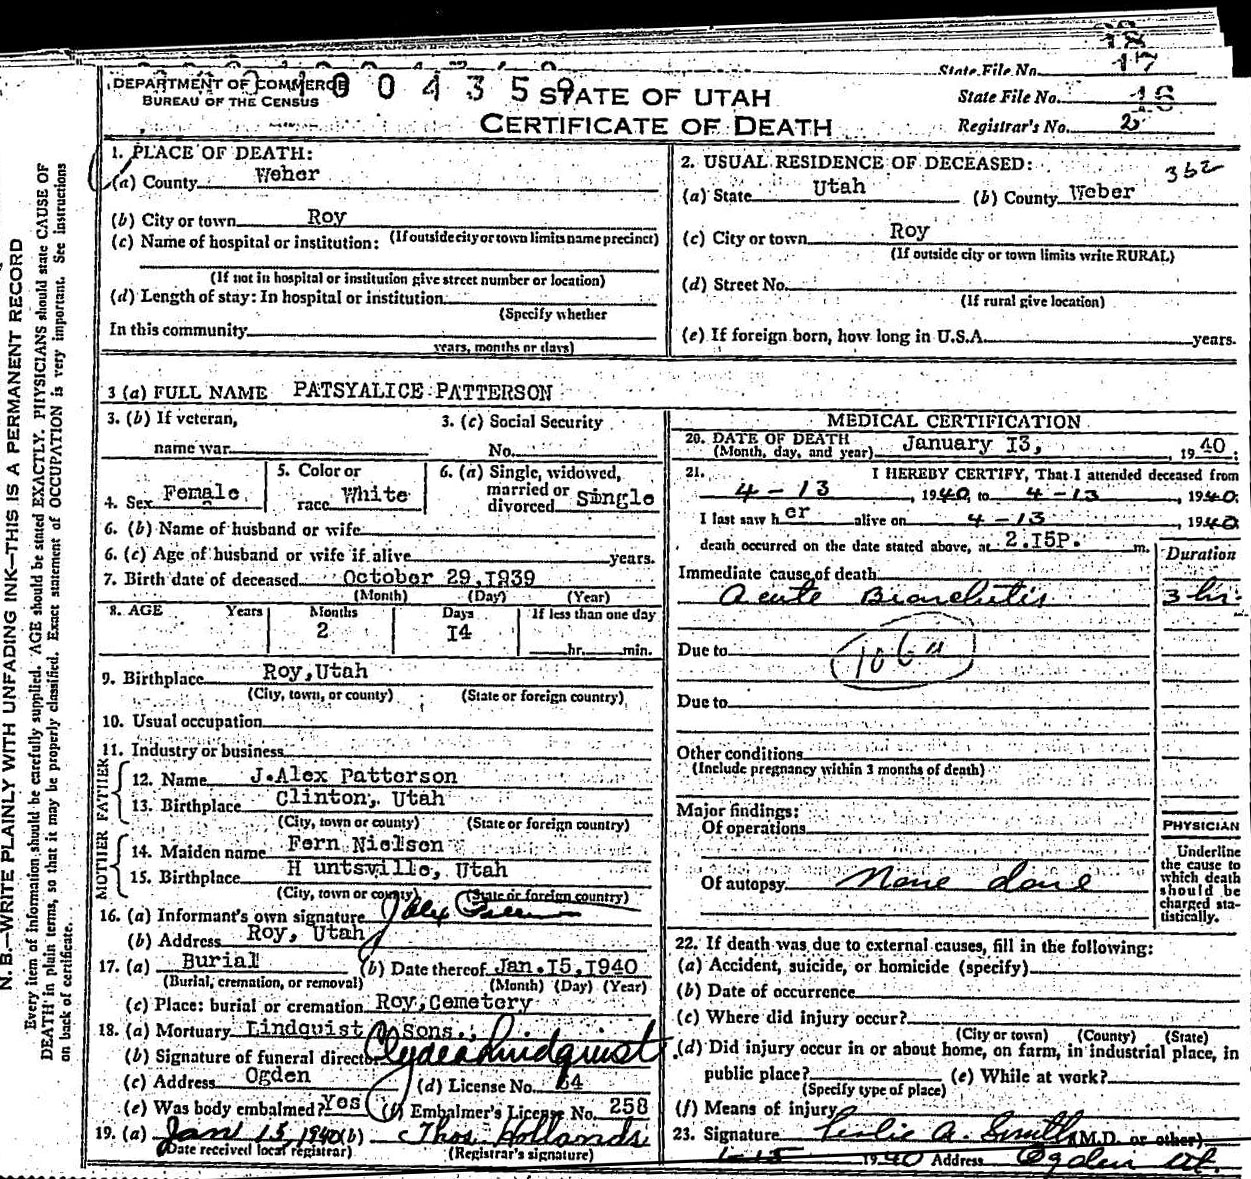 State File No. 17
DEPARTMENT OF COMMERCE
BUREAU OF THE CENSUS
004359
STATE OF UTAH
CERTIFICATE OF DEATH
State File No. 16
Registrar's No. 2
N. B.—WRITE PLAINLY WITH UNFADING INK—THIS IS A PERMANENT RECORD
Every item of information should be carefully supplied. AGE should be stated EXACTLY. PHYSICIANS should state CAUSE OF
DEATH in plain terms, so that it may be properly classified. Exact statement of OCCUPATION is very important. See Instructions
on back of certificate.
1. PLACE OF DEATH:
(a) County Weber
(b) City or town Roy
(c) Name of hospital or institution: (If outside city or town limits name precinct)
(If not in hospital or institution give street number or location)
(d) Length of stay: In hospital or institution
(Specify whether
In this community
years, months or days)
2. USUAL RESIDENCE OF DECEASED: 362
(a) State Utah (b) County Weber
(c) City or town Roy
(If outside city or town limits write RURAL)
(d) Street No.
(If rural give location)
(e) If foreign born, how long in U.S.A. years.
3 (a) FULL NAME PATSYALICE PATTERSON
3. (b) If veteran,
name war
3. (c) Social Security
No.
4. Sex Female
5. Color or
race White
6. (a) Single, widowed,
married or
divorced Single
6. (b) Name of husband or wife
6. (c) Age of husband or wife if alive years.
7. Birth date of deceased October 29,I939
(Month) (Day) (Year)
8. AGE Years Months Days If less than one day
2 I4
hr. min.
9. Birthplace Roy,Utah
(City, town, or county) (State or foreign country)
10. Usual occupation
11. Industry or business
FATHER
12. Name J.Alex Patterson
13. Birthplace Clinton, Utah
(City, town or county) (State or foreign country)
MOTHER
14. Maiden name Fern Nielson
15. Birthplace H untsville, Utah
(City, town or county) (State or foreign country)
16. (a) Informant's own signature J Alex
(b) Address Roy, Utah
17. (a) Burial (b) Date thereof Jan.I5,I940
(Burial, cremation, or removal) (Month) (Day) (Year)
(c) Place: burial or cremation Roy,Cemetery
18. (a) Mortuary Lindquist & Sons.
(b) Signature of funeral director Clyde Lindquist
(c) Address Ogden (d) License No. 64
(e) Was body embalmed? Yes (f) Embalmer's License No. 258
19. (a) Jan 15, 1940 (b) Thos Hollands
(Date received local registrar) (Registrar's signature)
MEDICAL CERTIFICATION
20. DATE OF DEATH
(Month, day, and year) January I3, , 19 40.
21. I HEREBY CERTIFY, That I attended deceased from
4-13, 1940, to 4-13, 1940.
I last saw her alive on 4-13, 1940
death occurred on the date stated above, at 2.I5P. m.
Duration
Immediate cause of death
Acute Bronchitis 3 hr.
Due to 106a
Due to
Other conditions
(Include pregnancy within 3 months of death)
Major findings:
Of operations
Of autopsy None done
PHYSICIAN
Underline
the cause to
which death
should be
charged sta-
tistically.
22. If death was due to external causes, fill in the following:
(a) Accident, suicide, or homicide (specify)
(b) Date of occurrence
(c) Where did injury occur?
(City or town) (County) (State)
(d) Did injury occur in or about home, on farm, in industrial place, in
public place? (e) While at work?
(Specify type of place)
(f) Means of injury
23. Signature Leslie A. Smith (M.D. or other)
1-15 1940 Address Ogden Ut.